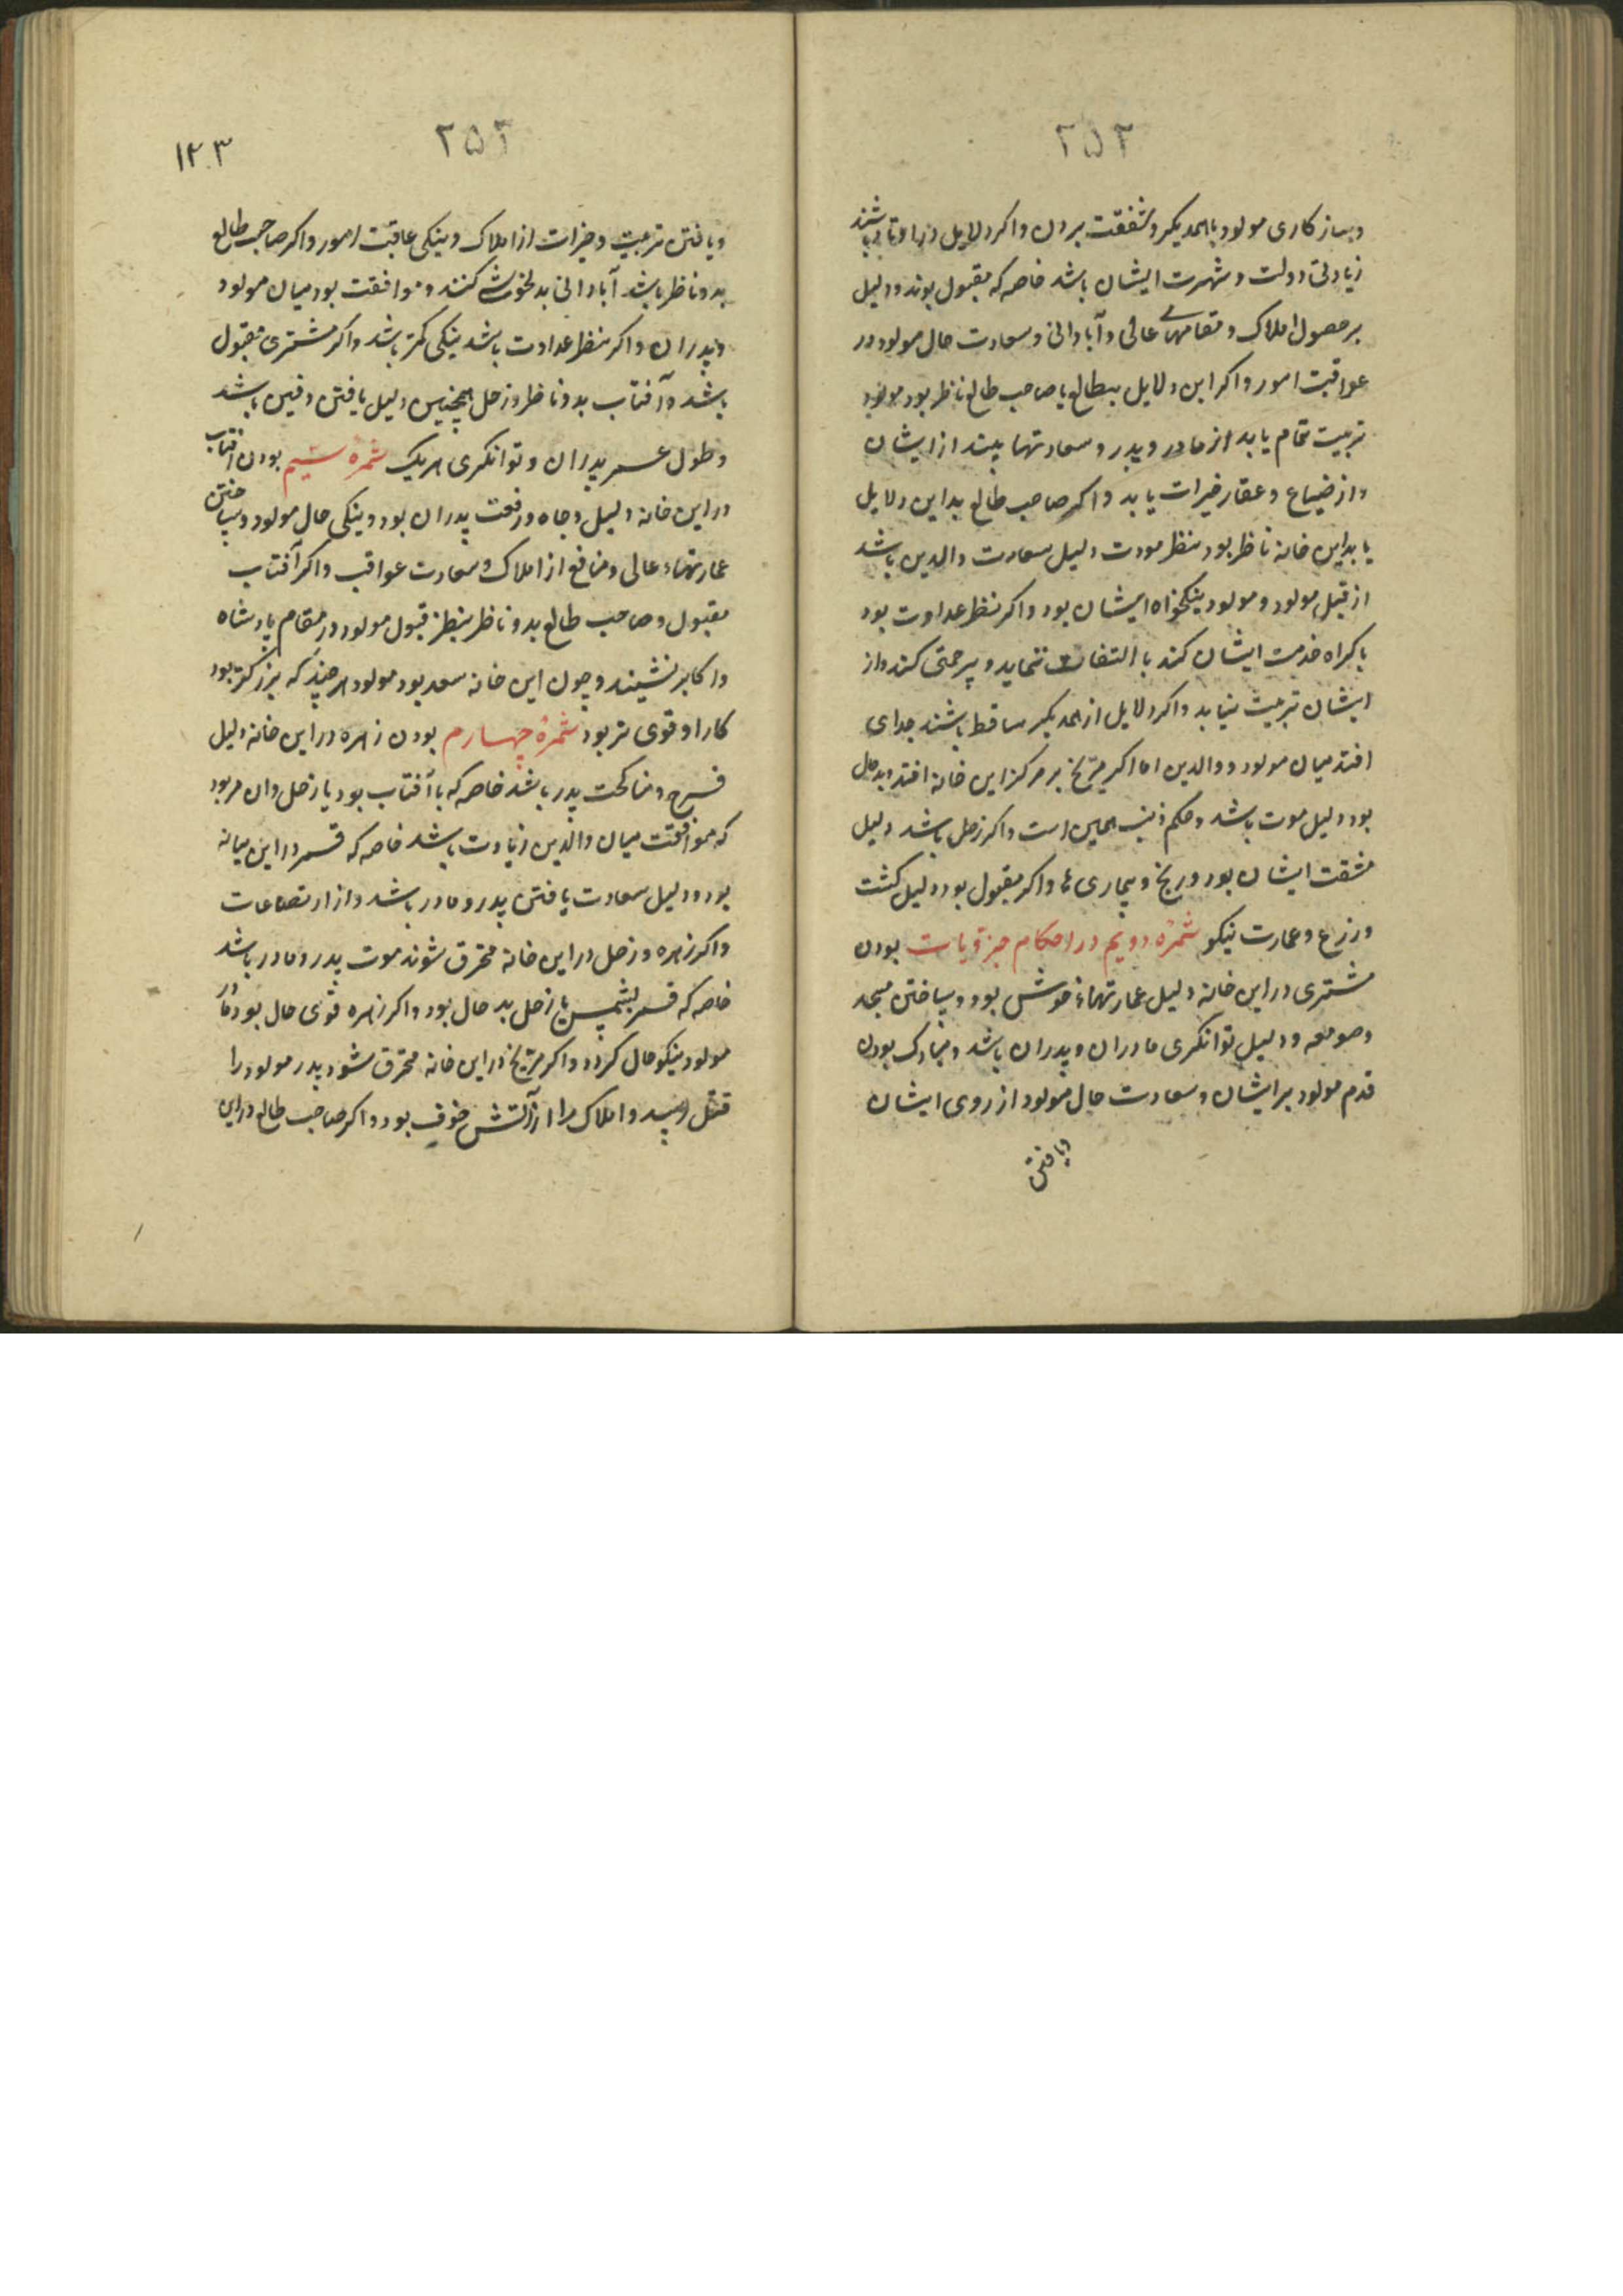 ۲۵۲
وبسازکاری مولود با همدیگر و شفقت بردن واکر دلایل در اوتاد باشند
زیادتی دولت و شهرت ایشان باشد خاصه که مقبول بوند و دلیل
بر حصول املاک و مقامهای عالی و آبادانی و سعادت حال مولود در
عواقبت امور واکر این دلایل بطالع یا صاحب طالع ناظر بود مولود
تربیت تمام یابد از مادر و پدر و سعادتها بیند از ایشان
واز ضیاع و عقار خیرات یابد واکر صاحب طالع بداین دلایل
یا بداین خانه ناظر بود بنظر مودت دلیل سعادت والدین باشد
از قبل مولود و مولود نیکخواه ایشان بود واکر بنظر عداوت بود
باکراه خدمت ایشان کند یا التفات ننماید و بیرحمتی کند واز
ایشان تربیت نیابد واکر دلایل از همدیکر ساقط باشند جدای
افتد میان مولود و والدین اما اکر مریخ بر مرکز این خانه افتد و بدحال
بود دلیل موت باشد و حکم ذنب همین است واکر زحل باشد دلیل
مشقت ایشان بود و رنج و بیماری ها واکر مقبول بود دلیل کشت
و زرع و عمارت نیکو ثمرهٔ دویم در احکام جزویات بودن
مشتری در این خانه دلیل عمارتهاء خوش بود و بساختن مسجد
و صومعه و دلیل توانکری مادران و پدران باشد و مبارک بودن
قدم مولود بر ایشان و سعادت حال مولود از روی ایشان
ویافتن
۲۵۳
۱۲۳
ویافتن تربیت و خیرات از املاک و نیکی عاقبت امور واکر صاحب طالع
بدو ناظر باشد آبادانی بدلخوشی کنند و موافقت بود میان مولود
و پدران واکر بنظر عداوت باشد نیکی کمتر باشد واکر مشتری مقبول
باشد و آفتاب بدو ناظر و زحل همچنین دلیل یافتن دفین باشد
و طول عمر پدران و توانکری هریک ثمره سیم بودن آفتاب
در این خانه دلیل و جاه و رفعت پدران بود و نیکی حال مولود و بساختن
عمارتهاء عالی و منافع از املاک و سعادت عواقب واکر آفتاب
مقبول و صاحب طالع بدو ناظر بنظر قبول مولود در مقام پادشاه
واکابر نشیند و چون این خانه سعد بود مولود هرچند که بزرکتر بود
کار او قوی تر بود ثمرهٔ چهارم بودن زهره در این خانه دلیل
فرح و مناکحت پدر باشد خاصه که با آفتاب بود یا زحل وان مر بود
که موافقت میان والدین زیادت باشد خاصه که قمر در این میانه
بود و دلیل سعادت یافتن پدر و مادر باشد واز ارتفاعات
واکر زهره و زحل در این خانه محترق شوند موت پدر و مادر باشد
خاصه که قمر بشمس یا زحل بد حال بود واکر زهره قوی حال بود مادر
مولود نیکوحال کردد واکر مریخ در این خانه محترق شود پدر مولود را
قتل رسد و املاک را از آتش خوف بود واکر صاحب طالع در این